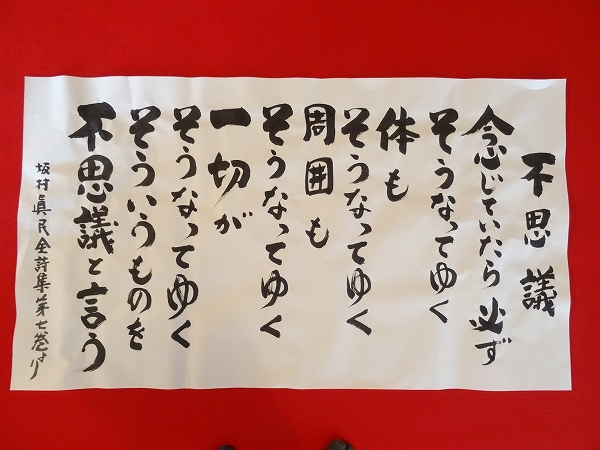 不思議
念じていたら必ず
そうなってゆく
体も
そうなってゆく
周囲も
そうなってゆく
一切が
そうなってゆく
そういうものを
不思議と言う
坂村眞民全詩集第七巻より